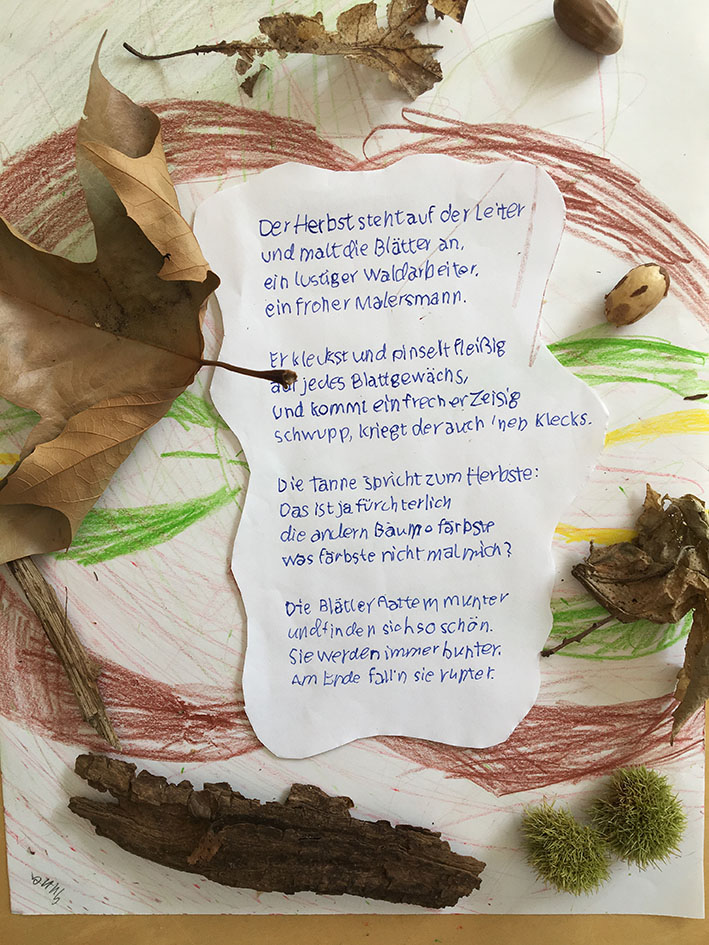 Der Herbst steht auf der Leiter
und malt die Blätter an,
ein lustiger Waldarbeiter,
ein froher Malersmann.
Er kleckst und pinselt fleißig
auf jedes Blattgewächs,
und kommt ein frecher Zeisig
schwupp, kriegt der auch 'nen Klecks.
Die Tanne spricht zum Herbste:
Das ist ja fürchterlich
die andern Bäume färbste
was färbste nicht mal mich?
Die Blätter flattern munter
und finden sich so schön.
Sie werden immer bunter.
Am Ende fall'n sie runter.